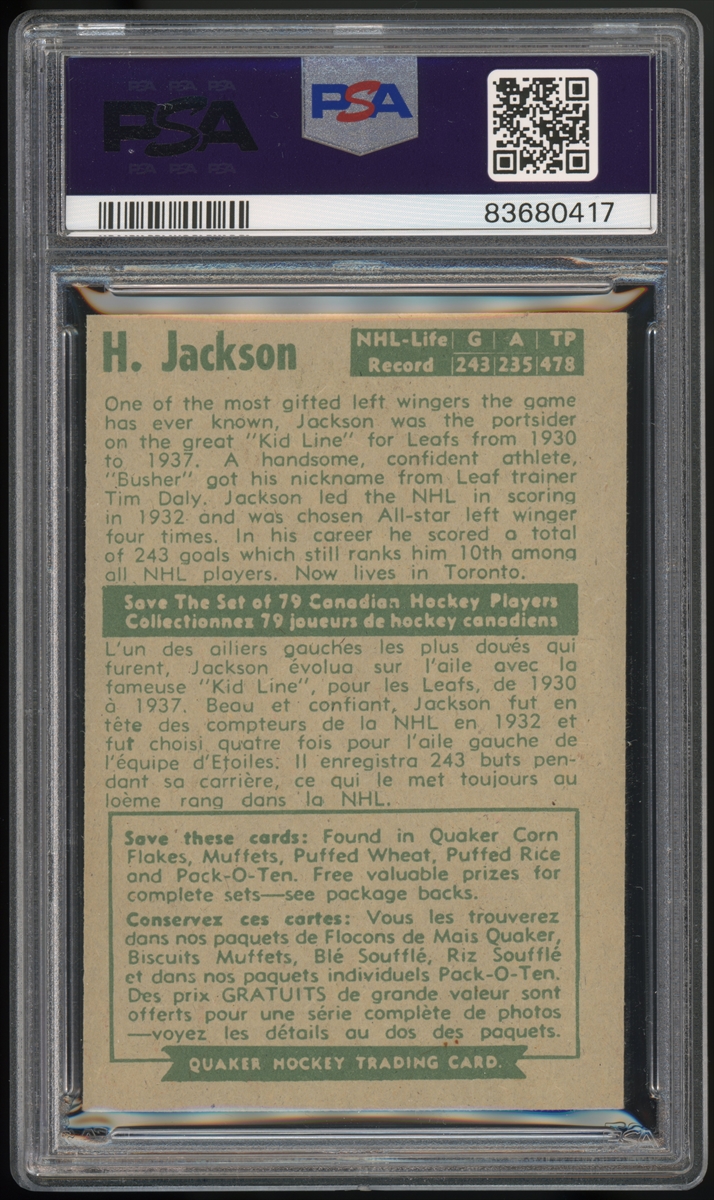 PSA PSA PSA
PSA
PSA PSA PSA
PSA
83680417
H. Jackson
NHL-Life G A TP
Record 243 235 478
One of the most gifted left wingers the game
has ever known, Jackson was the portsider
on the great "Kid Line" for Leafs from 1930
to 1937. A handsome, confident athlete,
"Busher" got his nickname from Leaf trainer
Tim Daly. Jackson led the NHL in scoring
in 1932 and was chosen All-star left winger
four times. In his career he scored a total
of 243 goals which still ranks him 10th among
all NHL players. Now lives in Toronto.
Save The Set of 79 Canadian Hockey Players
Collectionnez 79 joueurs de hockey canadiens
L'un des ailiers gauches les plus doués qui
furent, Jackson évolua sur l'aile avec la
fameuse "Kid Line", pour les Leafs, de 1930
à 1937. Beau et confiant, Jackson fut en
tête des compteurs de la NHL en 1932 et
fut choisi quatre fois pour l'aile gauche de
l'équipe d'Etoiles: Il enregistra 243 buts pen-
dant sa carrière, ce qui le met toujours au
loème rang dans la NHL.
Save these cards: Found in Quaker Corn
Flakes, Muffets, Puffed Wheat, Puffed Rice
and Pack-O-Ten. Free valuable prizes for
complete sets—see package backs.
Conservez ces cartes: Vous les trouverez
dans nos paquets de Flocons de Mais Quaker,
Biscuits Muffets, Blé Soufflé, Riz Soufflé
et dans nos paquets individuels Pack-O-Ten.
Des prix GRATUITS de grande valeur sont
offerts pour une série complète de photos
—voyez les détails au dos des paquets.
QUAKER HOCKEY TRADING CARD.